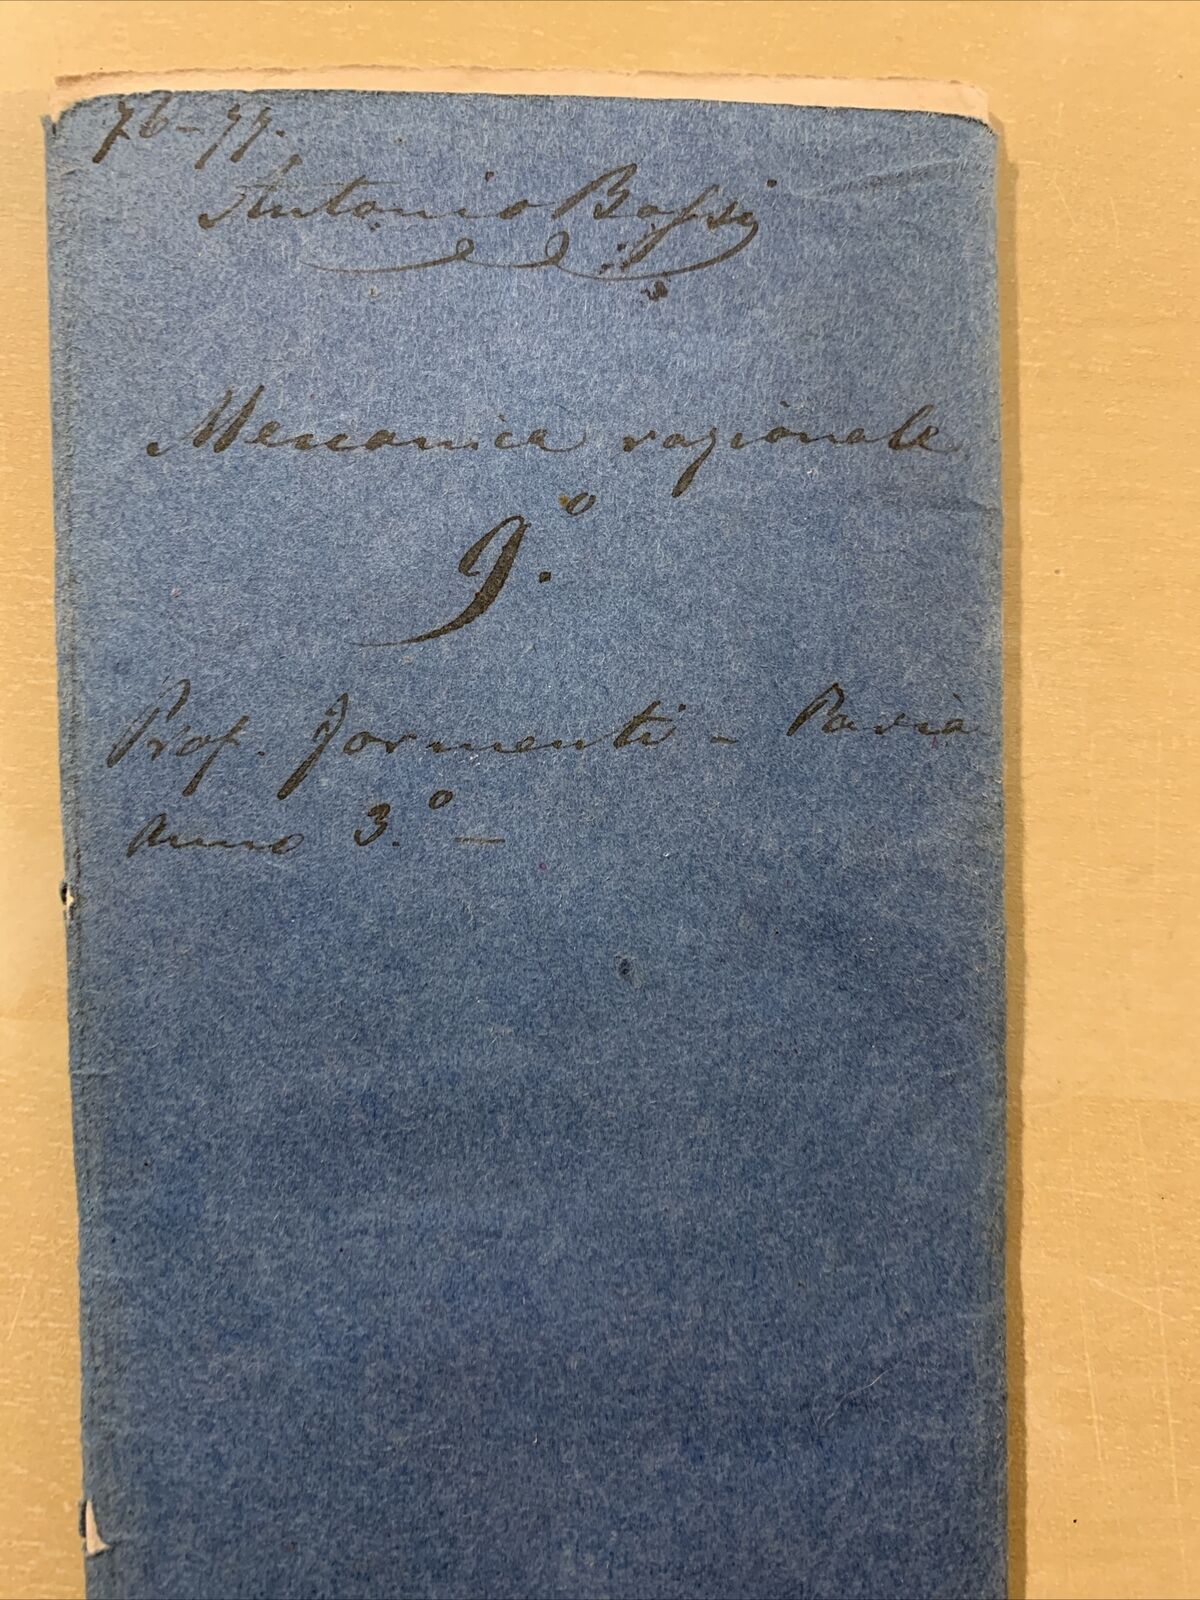 76-77.
Antonio Bassi
Meccanica razionale
9.°
Prof. Formenti - Pavia
Anno 3.° -